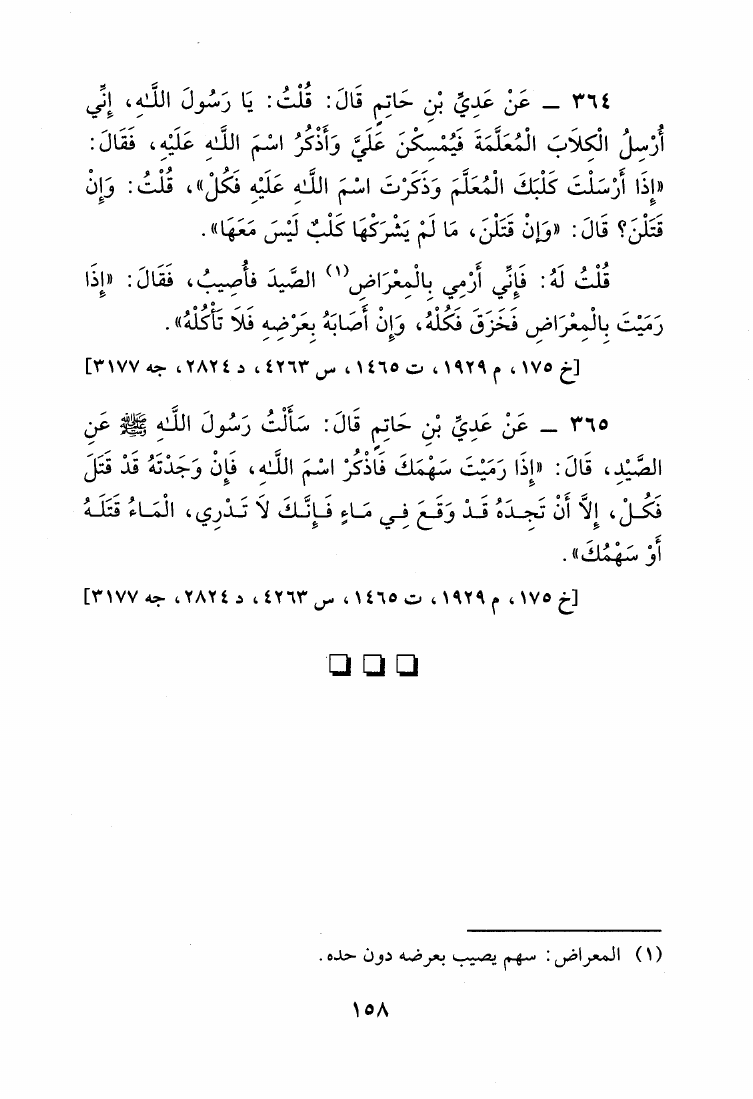 ٣٦٤ ـ عَنْ عَدِيِّ بْنِ حَاتِمٍ قَالَ: قُلْتُ: يَا رَسُولَ اللَّهِ، إِنِّي
أُرْسِلُ الْكِلَابَ الْمُعَلَّمَةَ فَيُمْسِكْنَ عَلَيَّ وَأَذْكُرُ اسْمَ اللَّهِ عَلَيْهِ، فَقَالَ:
«إِذَا أَرْسَلْتَ كَلْبَكَ الْمُعَلَّمَ وَذَكَرْتَ اسْمَ اللَّهِ عَلَيْهِ فَكُلْ»، قُلْتُ: وَإِنْ
قَتَلْنَ؟ قَالَ: «وَإِنْ قَتَلْنَ، مَا لَمْ يَشْرَكْهَا كَلْبٌ لَيْسَ مَعَهَا».
قُلْتُ لَهُ: فَإِنِّي أَرْمِي بِالْمِعْرَاضِ(١) الصَّيدَ فَأُصِيبُ، فَقَالَ: «إِذَا
رَمَيْتَ بِالْمِعْرَاضِ فَخَزَقَ فَكُلْهُ، وَإِنْ أَصَابَهُ بِعَرْضِهِ فَلَا تَأْكُلْهُ».
[خ ١٧٥، م ١٩٢٩، ت ١٤٦٥، س ٤٢٦٣، د ٢٨٢٤، جه ٣١٧٧]
٣٦٥ ـ عَنْ عَدِيِّ بْنِ حَاتِمٍ قَالَ: سَأَلْتُ رَسُولَ اللَّهِ ﷺ عَنِ
الصَّيْدِ، قَالَ: «إِذَا رَمَيْتَ سَهْمَكَ فَاذْكُرْ اسْمَ اللَّهِ، فَإِنْ وَجَدْتَهُ قَدْ قَتَلَ
فَكُلْ، إِلَّا أَنْ تَجِدَهُ قَدْ وَقَعَ فِي مَاءٍ فَإِنَّكَ لَا تَدْرِي، الْمَاءُ قَتَلَهُ
أَوْ سَهْمُكَ».
[خ ١٧٥، م ١٩٢٩، ت ١٤٦٥، س ٤٢٦٣، د ٢٨٢٤، جه ٣١٧٧]
(١) المعراض: سهم يصيب بعرضه دون حده.
١٥٨